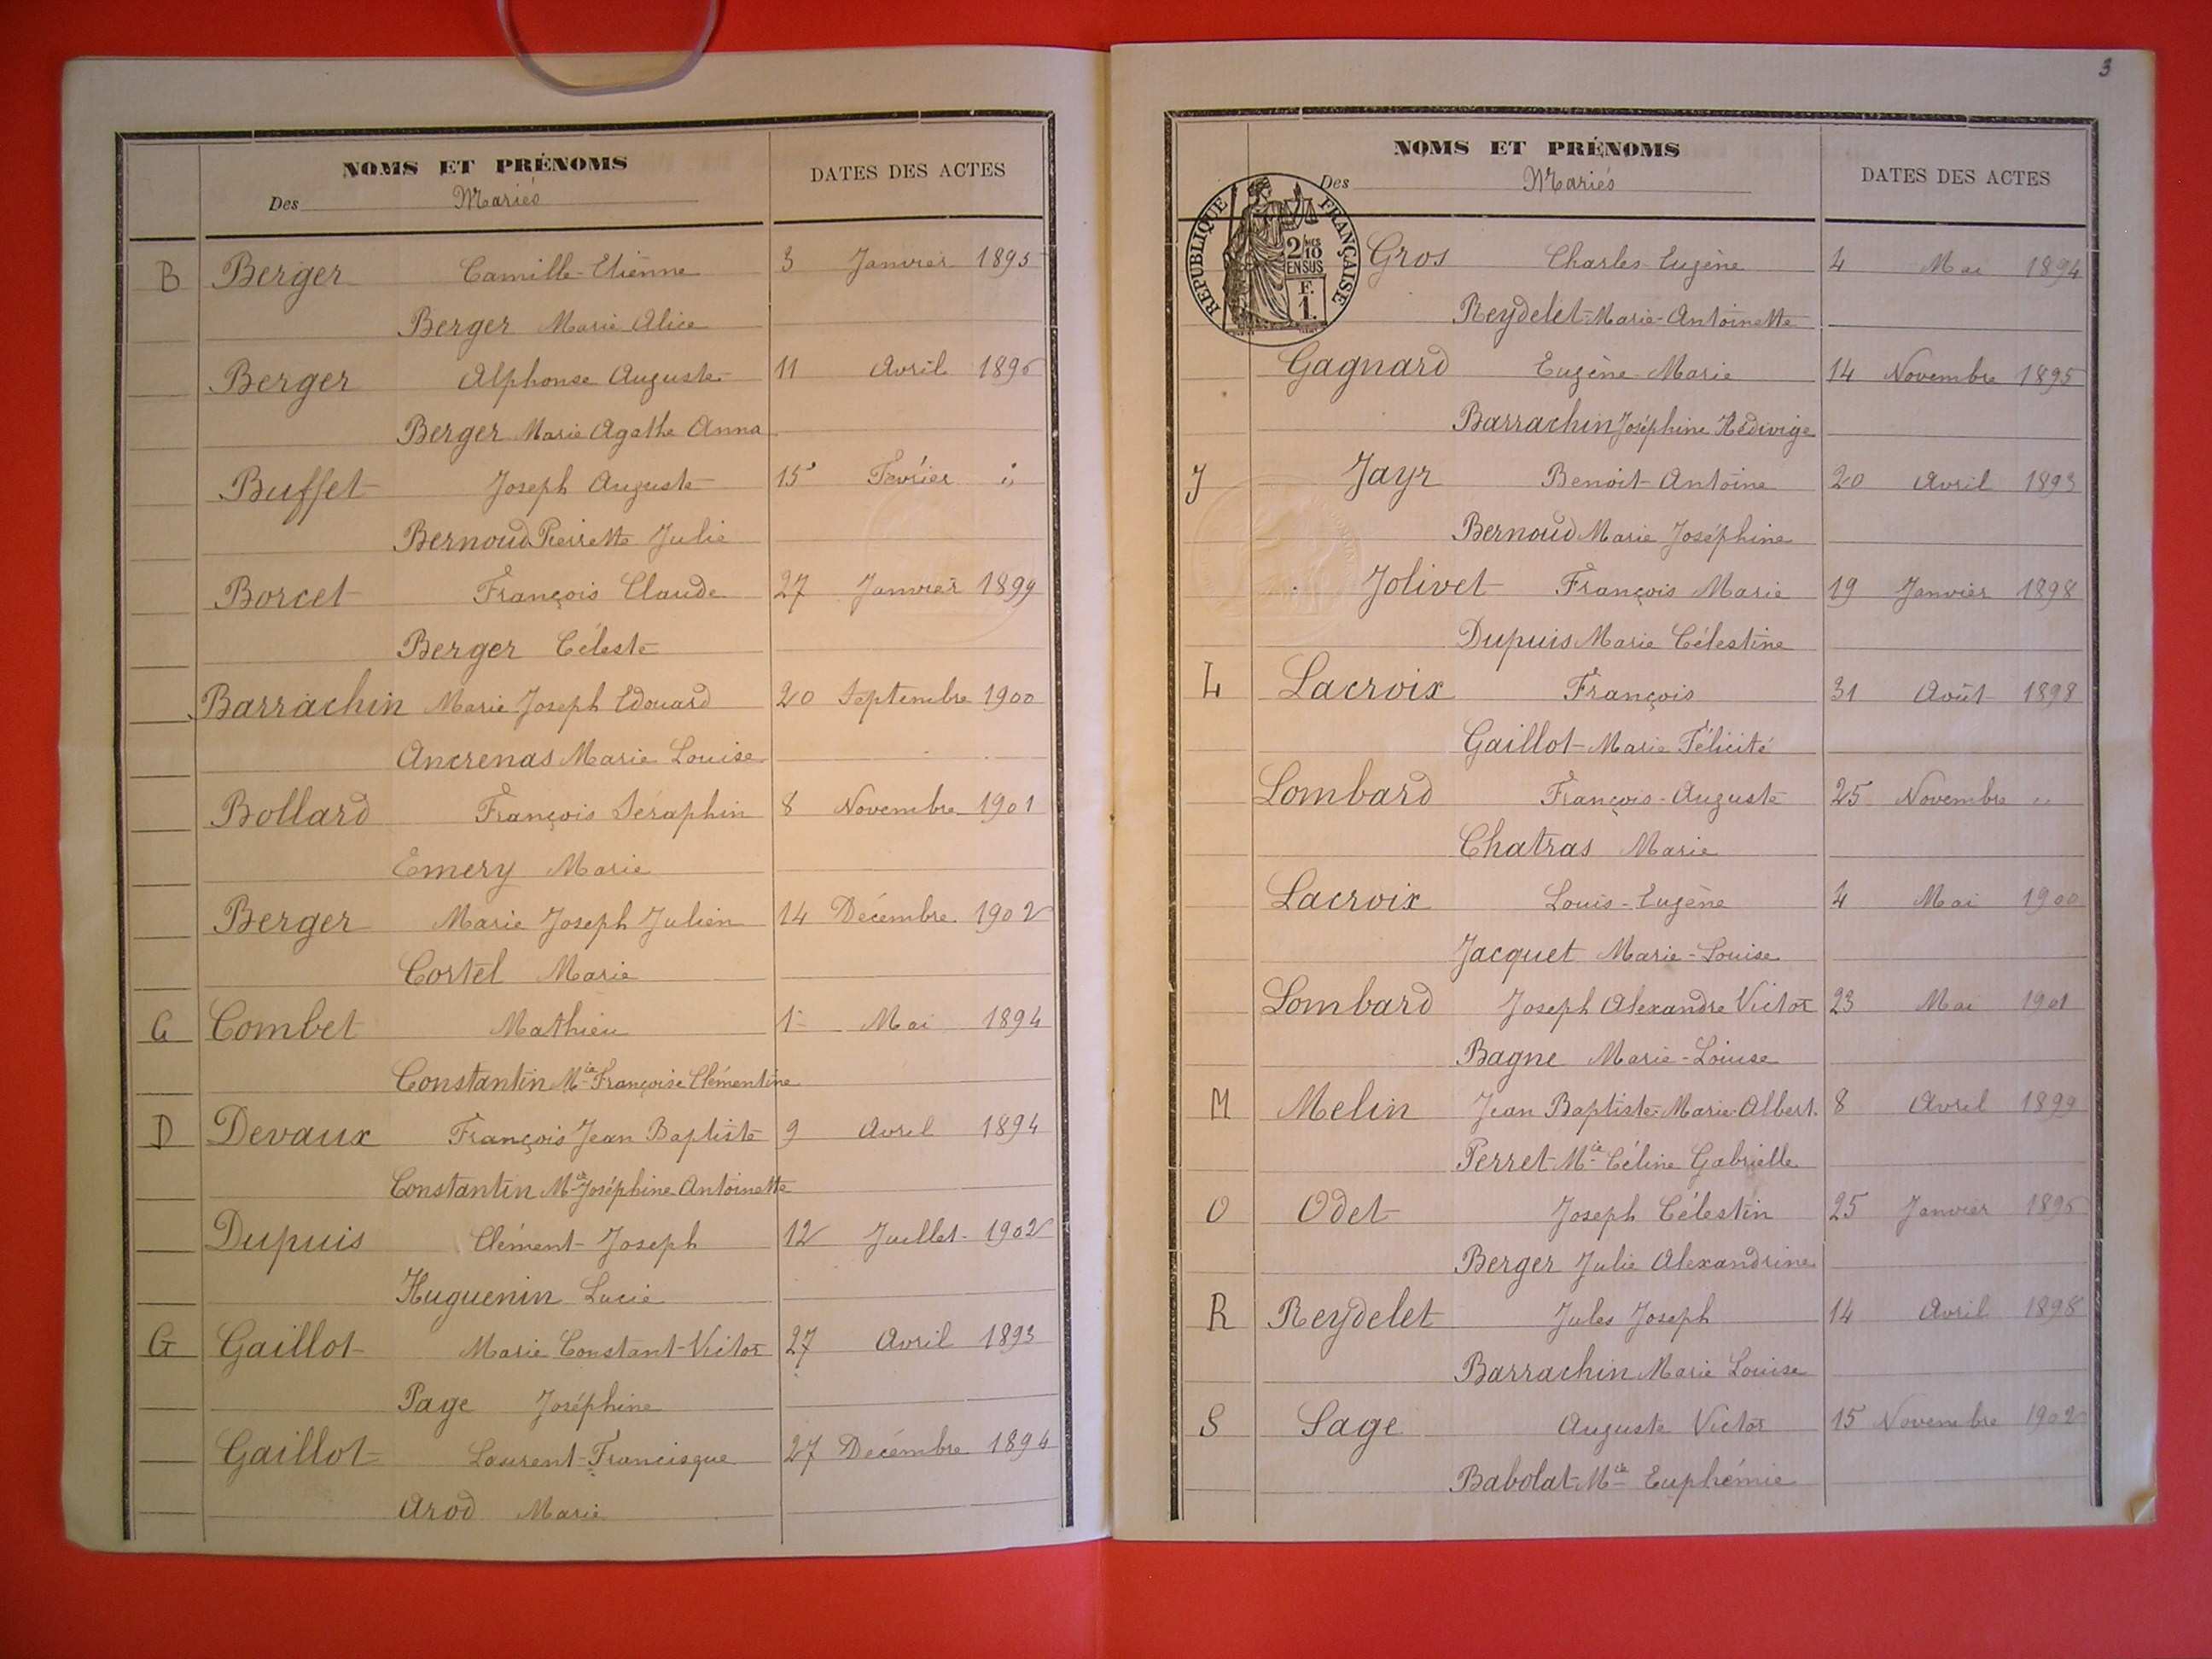 NOMS ET PRÉNOMS
Des Mariés
DATES DES ACTES
B Berger Camille-Etienne 3 Janvier 1895
Berger Marie Alice
Berger Alphonse Auguste 11 Avril 1896
Berger Marie Agathe Anna
Buffet Joseph Auguste 15 Février
Bernoud Pierrette Julie
Borcet François Claude 27 Janvier 1899
Berger Céleste
Barrachin Marie Joseph Edouard 20 Septembre 1900
Ancrenas Marie Louise
Bollard François Séraphin 8 Novembre 1901
Emery Marie
Berger Marie Joseph Julien 14 Décembre 1902
Cortel Marie
C Combet Mathieu 1er Mai 1894
Constantin Mie Françoise Clémentine
D Devaux François Jean Baptiste 9 Avril 1894
Constantin Mie Joséphine Antoinette
Dupuis Clément-Joseph 12 Juillet 1902
Huguenin Lucie
G Gaillot Marie Constant-Victor 27 Avril 1893
Page Joséphine
Gaillot Laurent-Francisque 27 Décembre 1894
Arod Marie
3
NOMS ET PRÉNOMS
Des Mariés
DATES DES ACTES
RÉPUBLIQUE FRANÇAISE
2/10 MES
EN SUS
F.
1.
Gros Charles-Eugène 4 Mai 1894
Reydelet Marie-Antoinette
Gagnard Eugène-Marie 14 Novembre 1895
Barrachin Joséphine Hédivige
J Jayr Benoit-Antoine 20 Avril 1893
Bernoud Marie Joséphine
Jolivet François Marie 19 Janvier 1898
Dupuis Marie Célestine
L Lacroix François 31 Août 1898
Gaillot Marie Félicité
Lombard François-Auguste 25 Novembre "
Chatras Marie
Lacroix Louis-Eugène 4 Mai 1900
Jacquet Marie-Louise
Lombard Joseph Alexandre Victor 23 Mai 1901
Bagne Marie-Louise
M Melin Jean Baptiste-Marie-Albert. 8 Avril 1899
Perret Mie Céline Gabrielle
O Odet Joseph Célestin 25 Janvier 1896
Berger Julie Alexandrine
R Reydelet Jules Joseph 14 Avril 1898
Barrachin Marie Louise
S Sage Auguste Victor 15 Novembre 1902
Babolat Mie Euphémie